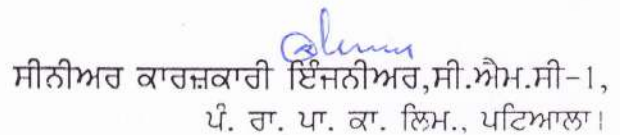 ਸੀਨੀਅਰ ਕਾਰਜ਼ਕਾਰੀ ਇੰਜਨੀਅਰ,ਸੀ.ਐਮ.ਸੀ-1,
ਪੰ. ਰਾ. ਪਾ. ਕਾ. ਲਿਮ., ਪਟਿਆਲਾ।